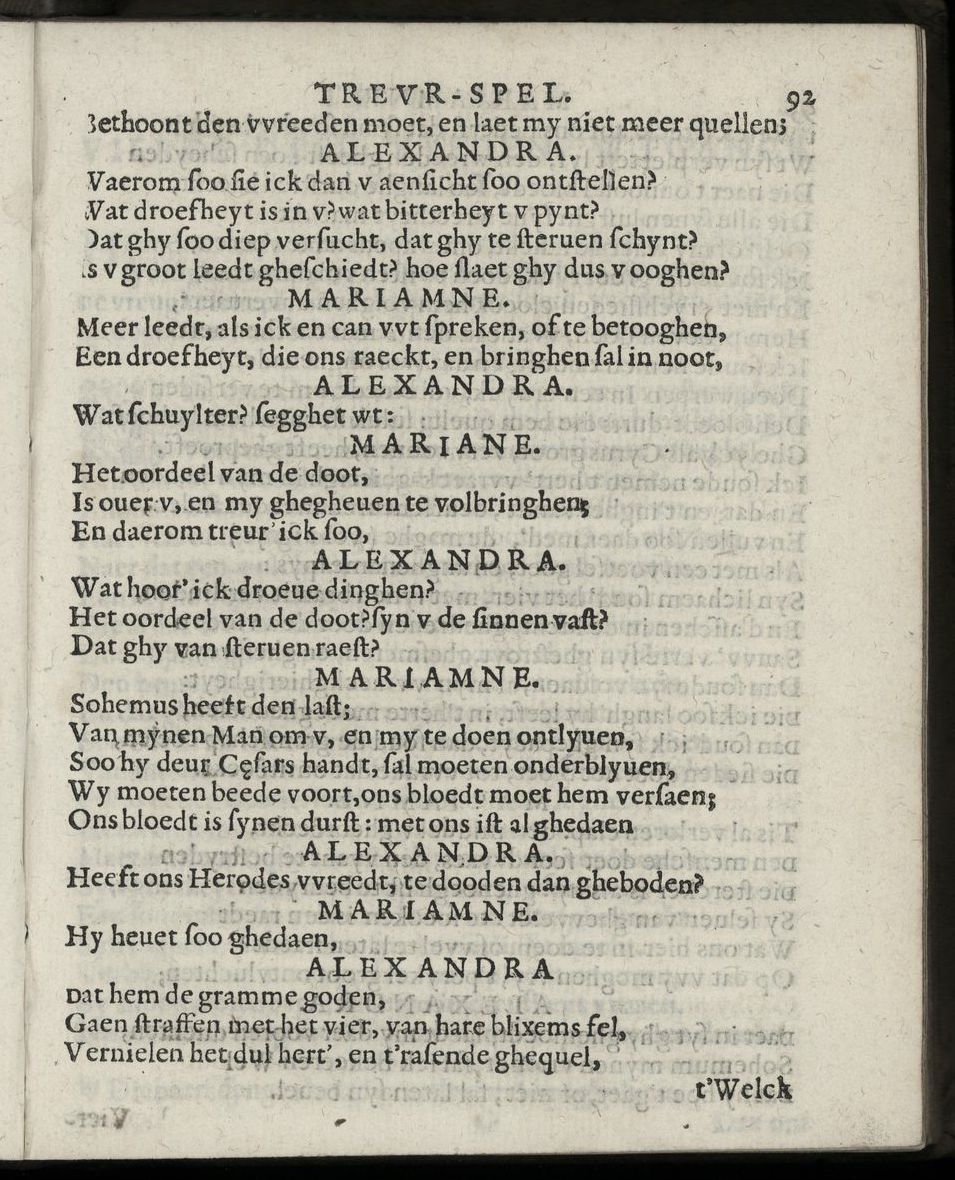 TREVR-SPEL. 92
Bethoont den vvreeden moet, en laet my niet meer quellen;
ALEXANDRA.
Vaerom ſoo ſie ick dan v aenſicht ſoo ontſtellen?
Wat droefheyt is in v? wat bitterheyt v pynt?
Dat ghy ſoo diep verſucht, dat ghy te ſteruen ſchynt?
Is v groot leedt gheſchiedt? hoe ſlaet ghy dus v ooghen?
MARIAMNE.
Meer leedt, als ick en can vvt ſpreken, of te betooghen,
Een droefheyt, die ons raeckt, en bringhen ſal in noot,
ALEXANDRA.
Wat ſchuylter? ſegghet wt:
MARIANE.
Het oordeel van de doot,
Is ouer v, en my ghegheuen te volbringhen;
En daerom treur'ick ſoo,
ALEXANDRA.
Wat hoor'ick droeue dinghen?
Het oordeel van de doot? ſyn v de ſinnen vaſt?
Dat ghy van ſteruen raeſt?
MARIAMNE.
Sohemus heeft den laſt;
Van mynen Man om v, en my te doen ontlyuen,
Soo hy deur Cęſars handt, ſal moeten onderblyuen,
Wy moeten beede voort, ons bloedt moet hem verſaen;
Ons bloedt is ſynen durſt: met ons iſt al ghedaen
ALEXANDRA.
Heeft ons Herodes vvreedt, te dooden dan gheboden?
MARIAMNE.
Hy heuet ſoo ghedaen,
ALEXANDRA
Dat hem de gramme goden,
Gaen ſtraffen met het vier, van hare blixems fel,
Vernielen het dul hert', en t'raſende ghequel,
t'Welck